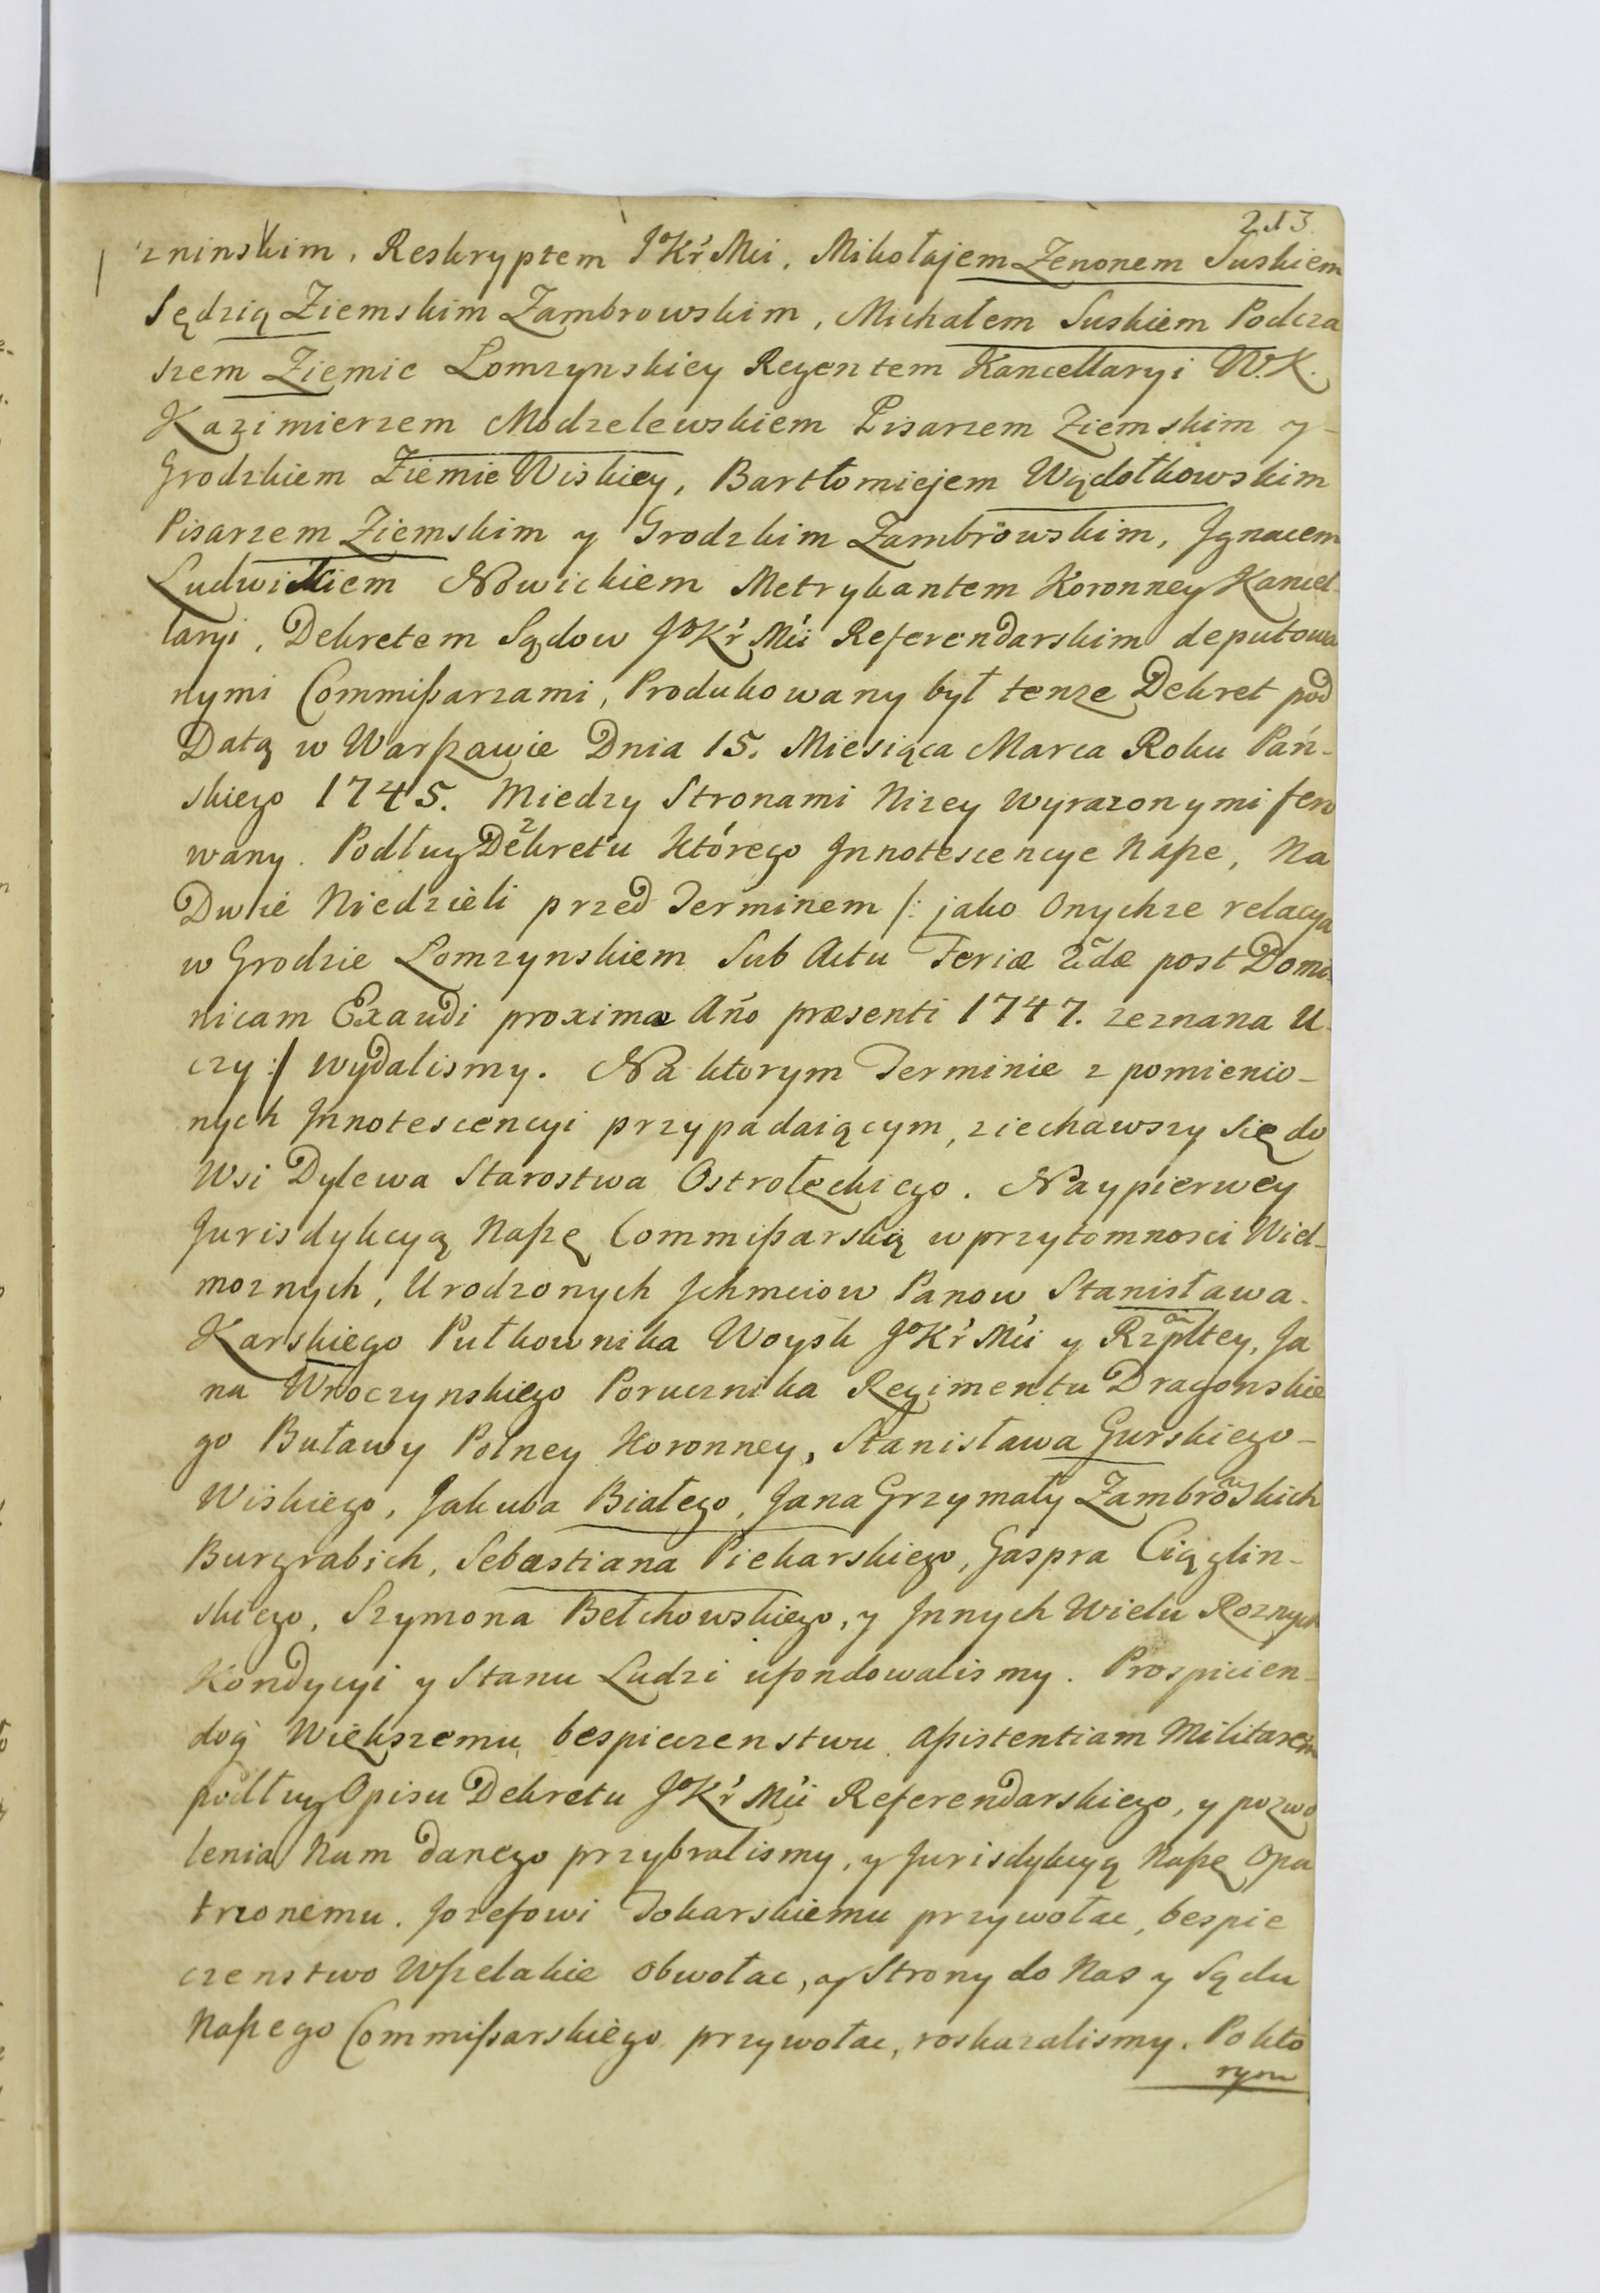 213
zninskim, Reskryptem JoKr Mci. Mikołajem Zenonem Suskiem
Sędzią Ziemskim Zambrowskim, Michałem Suskiem Podcza
szem Ziemie Lomzynskiey Regentem Kancellaryi W.K.
Kazimierzem Modzelewskiem Pisarzem Ziemskim y
Grodzkiem Ziemie Wiskiey, Bartłomiejem Wądołkowskim
Pisarzem Ziemskim y Grodzkim Zambrowskim, Jgnacem
Ludwikiem Nowickiem Metrykantem Koronney Kancel-
laryi, Dekretem Sądow JoKr Mci Referendarskim deputowa
nymi Commißarzami, Produkowany był tenze Dekret pod
Datą w Warßawie Dnia 15. Miesiąca Marca Roku Pań-
skiego 1745. Miedzy Stronami Nizey wyrazonymi fero
wany. Podług Dekretu którego Jnnotescencye Naße, Na
Dwie Niedzieli przed Terminem /: jako Onychze relacya
w Grodzie Lomzynskiem Sub Actu Feriæ 2dæ post Domi-
nicam Exaudi proxima Año præsenti 1747. zeznana U-
czy :/ wydalismy. Na ktorym Terminie z pomienio-
nych Jnnotescencyi przypadaiącym, ziechawszy się do
Wsi Dylewa Starostwa Ostrołęckiego. Naypierwey
Jurisdykcyą Naßę Commißarską w przytomnosci Wiel-
moznych, Urodzonych Jchmciow Panow Stanisława
Karskiego Pułkownika Woysk JoKr Mci y Rzpltey, Ja
na Wroczynskiego Porucznika Regimentu Dragonskie
go Buławy Polney Koronney, Stanisława Gurskiego
Wiskiego, Jakuba Białego, Jana Grzymały Zambrowskich
Burgrabich, Sebastiana Piekarskiego, Gaspra Ciąglin-
skiego, Szymona Bełchowskiego, y Jnnych Wielu Roznych
Kondycyi y Stanu Ludzi ufondowalismy. Prospicien-
doq Większemu bespieczenstwu aßistentiam Militarem
podług Opisu Dekretu JoKr Mci Referendarskiego, y pozwo
lenia Nam danego przybralismy, y Jurisdykcyą Naßę Opa
trzonemu Jozefowi Tokarskiemu przywołac, bespie
czenstwo Wßelakie obwołac, y Strony do Nas y Sądu
Naßego Commißarskiego przywołac, roskazalismy. Po kto
rym